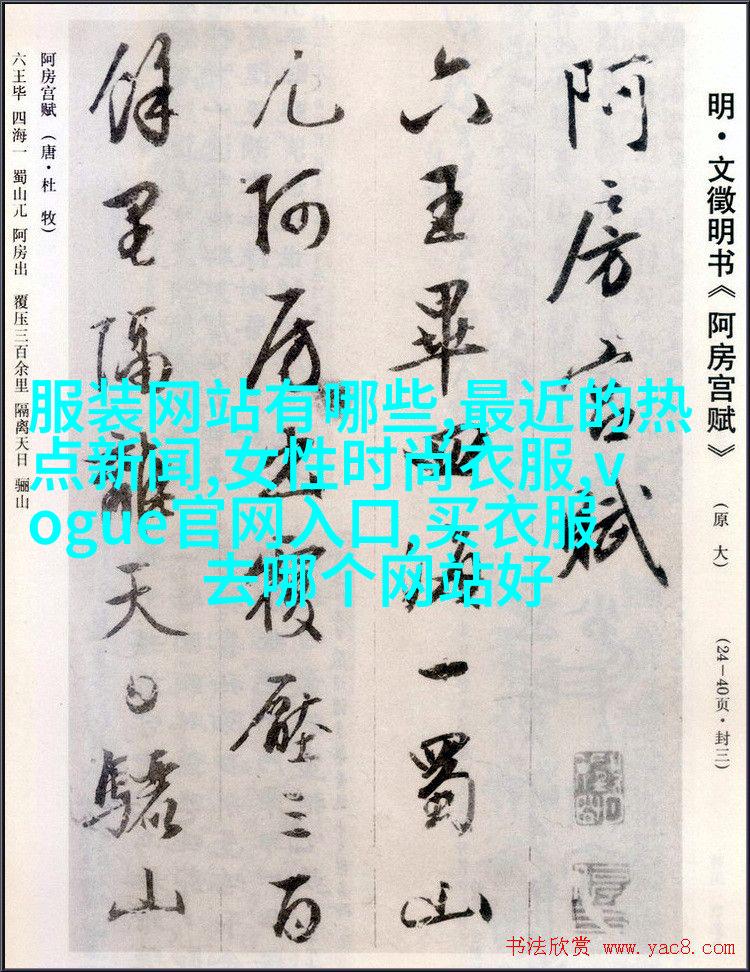 明·文徵明书《阿房宫赋》
(原大)
(24—40页·封三)
阿房宫赋
六王毕四海一蜀山
兀阿房出覆压三百
馀里隔离天日骊山
阿房宫赋(唐·杜牧)
六王毕 四海一 蜀山兀 阿房出 覆压三百余里 隔离天日 骊山
服装网站有哪些,最近的热
点新闻,女性时尚衣服,v
ogue官网入口,买衣服
去哪个网站好
书法欣赏 www.yac8.com